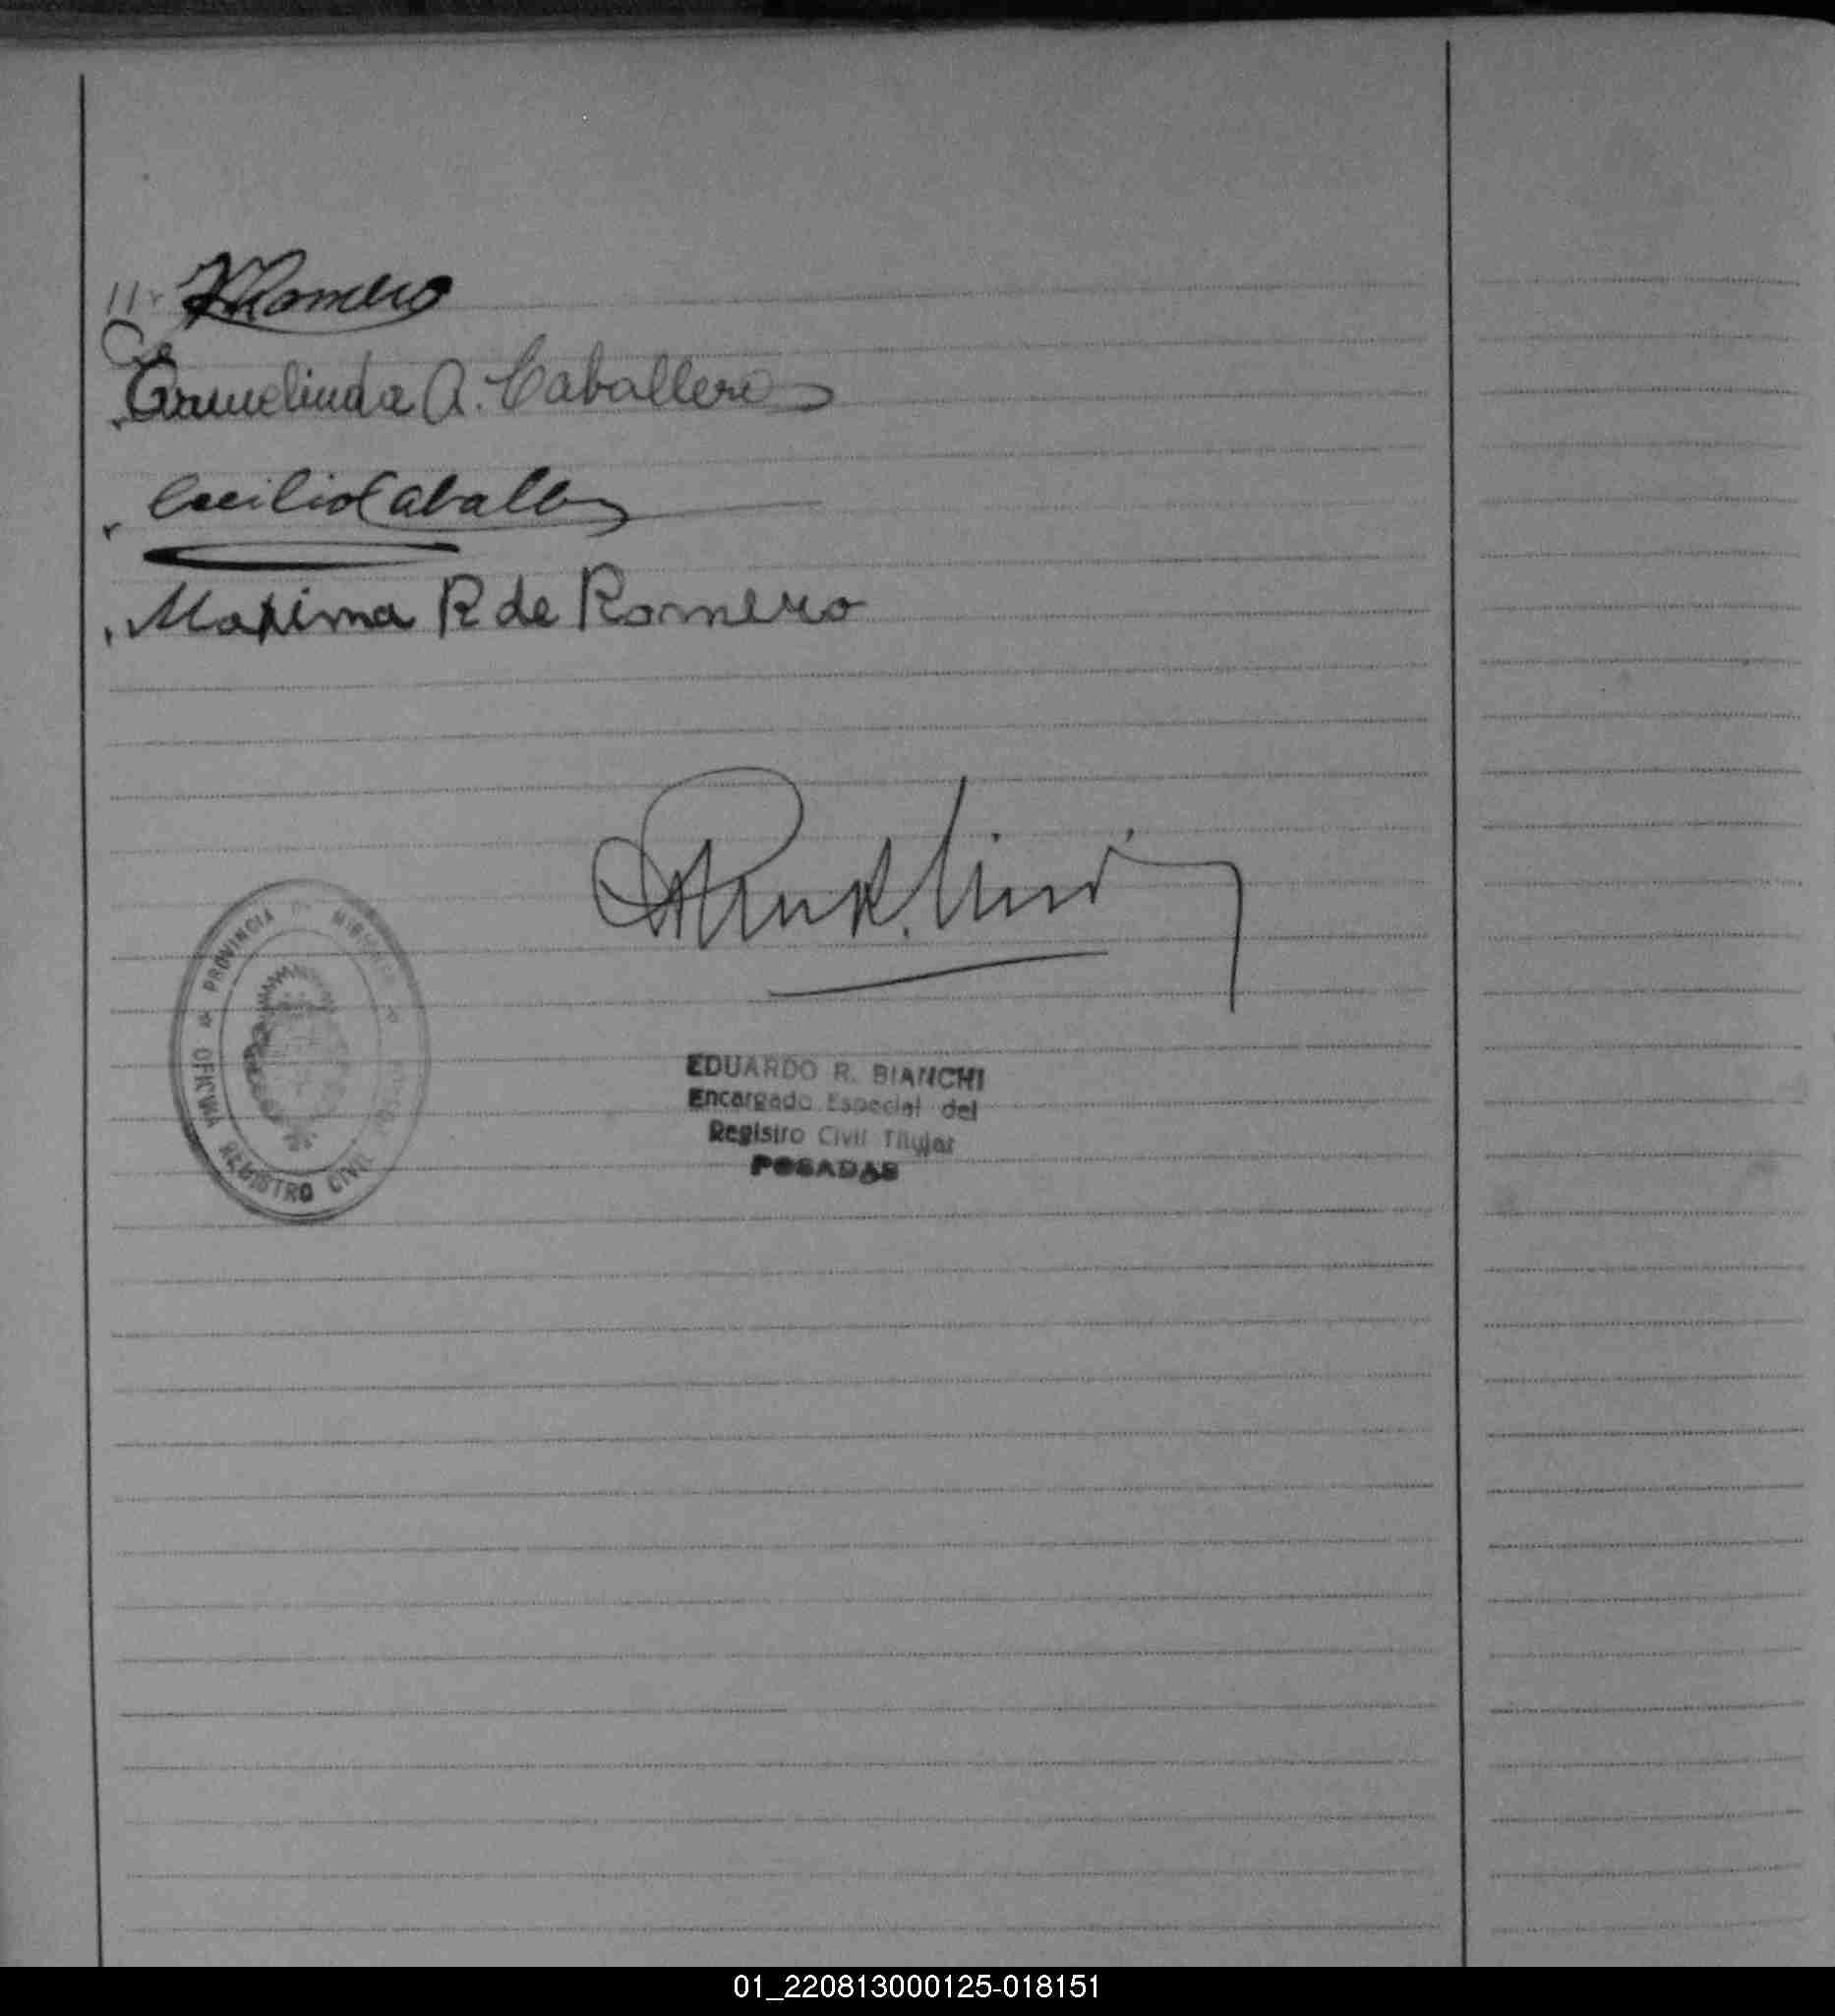 Romero
Ermelinda A. Caballero
Cecilio Caballero
Maxima R de Romero
PROVINCIA DE MISIONES
OFICINA REGISTRO CIVIL
EDUARDO R. BIANCHI
Encargado Especial del
Registro Civil Titular
POSADAS
01_220813000125-018151